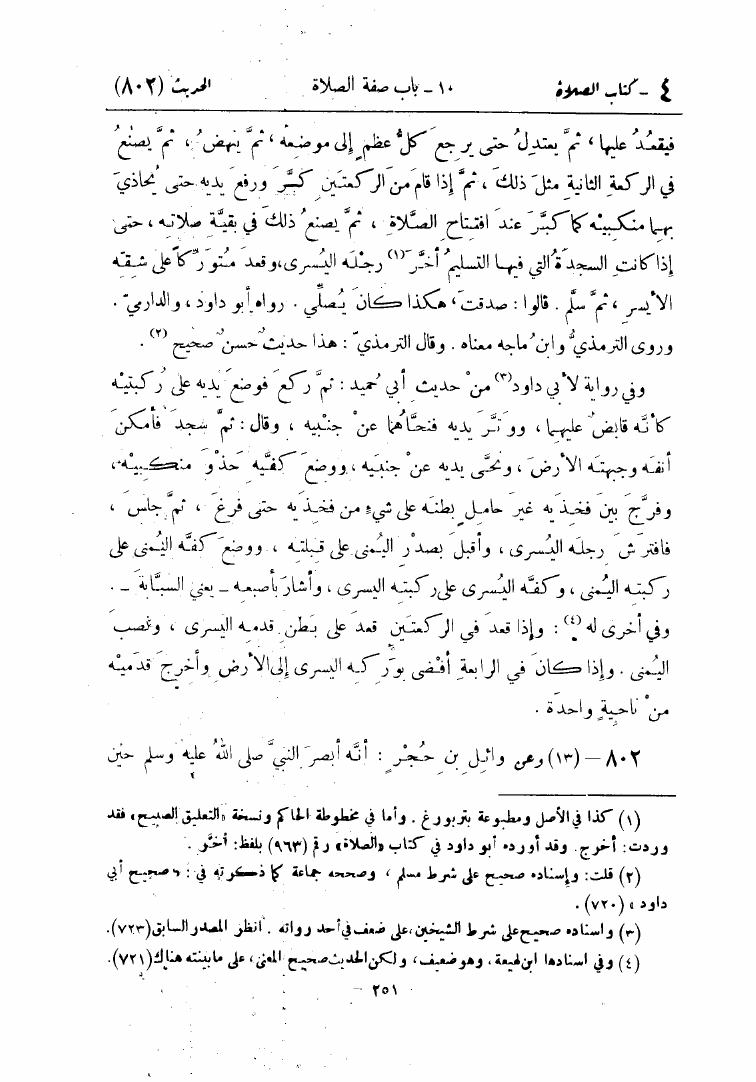 ٤ - كتاب الصلاة ١٠ - باب صفة الصلاة الحديث (٨٠٢)
فيقعُدُ عليها، ثمَّ يعتدِلُ حتى يرجعَ كلُّ عظمٍ إلى موضعِه، ثمَّ ينهضُ، ثمَّ يصنعُ
في الركعةِ الثانيةِ مثلَ ذلكَ، ثمَّ إذا قامَ منَ الركعتينِ كبَّرَ ورفعَ يديه حتى يُحاذيَ
بهما منكبيْه كما كبَّرَ عندَ افتِتاحِ الصَّلاةِ، ثمَّ يصنعُ ذلكَ في بقيَّةِ صلاتِه، حتى
إذا كانتِ السجدَةُ التي فيها التسليمُ أخَّرَ (١) رجلَه اليُسرى، وقعدَ مُتورِّكاً على شِقِّه
الأيسرِ، ثمَّ سلَّم. قالوا: صدقتَ، هكذا كانَ يُصلِّي. رواه أبو داود، والدارميّ.
وروى الترمذيُّ وابنُ ماجه معناه. وقال الترمذيّ: هذا حديثٌ حسنٌ صحيح (٢).
وفي رواية لأبي داود (٣) منْ حديثِ أبي حُميد: ثمَّ ركعَ فوضعَ يديه على رُكبتيْه
كأنَّه قابضٌ عليهما، ووتَّرَ يديه فنحَّاهُما عنْ جنْبيه، وقال: ثمَّ سجدَ فأمكنَ
أنفَه وجبهتَه الأرضَ، ونحَّى يديه عنْ جنبَيه، ووضعَ كفَّيه حَذْوَ منكِبيْه،
وفرَّجَ بينَ فخذَيه غيرَ حاملٍ بطنَه على شيءٍ من فخذَيه حتى فرغَ، ثمَّ جلسَ،
فافترَشَ رجلَه اليُسرى، وأقبلَ بصدْرِ اليُمنى على قِبلتِه، ووضعَ كفَّه اليُمنى على
ركبتِه اليُمنى، وكفَّه اليُسرى على ركبتِه اليسرى، وأشارَ بأصبعِه - يعني السبَّابةَ -.
وفي أخرى له (٤): وإذا قعدَ في الركعتَينِ قعدَ على بَطنِ قدمِه اليسرى، ونصبَ
اليُمنى. وإذا كانَ في الرابعةِ أفْضى بوَرِكِه اليسرى إلى الأرضِ وأخرجَ قدَميْه
منْ ناحيةٍ واحدَة.
٨٠٢ - (١٣) وعن وائلِ بنِ حُجْر: أنَّه أبصرَ النبيَّ صلى اللهُ عليه وسلم حينَ
(١) كذا في الأصل ومطبوعة بتربورغ. وأما في مخطوطة الحاكم ونسخة «التعليق الصبيح» فقد
وردت: أخرج. وقد أورده أبو داود في كتاب «الصلاة» رقم (٩٦٣) بلفظ: أخَّر.
(٢) قلت: وإسناده صحيح على شرط مسلم، وصححه جماعة كما ذكرته في: «صحيح أبي
داود» (٧٢٠).
(٣) واسناده صحيح على شرط الشيخين، على ضعف في أحد رواته. انظر المصدر السابق (٧٢٣).
(٤) وفي اسنادها ابن لهيعة، وهو ضعيف، ولكن الحديث صحيح المعنى، على ما بينته هناك (٧٢١).
٢٥١